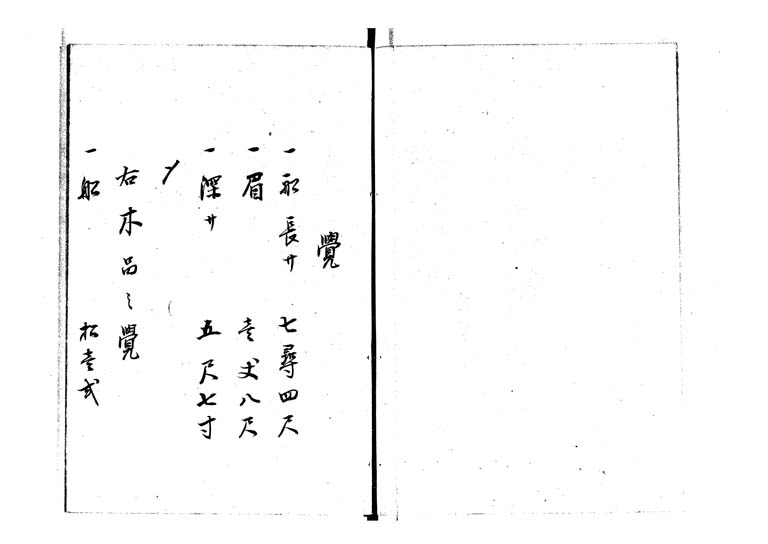 覺
一 船長サ 七尋四尺
一 眉 壱丈八尺
一 深サ 五尺七寸
〆
右木品之覺
一 船 松壱式